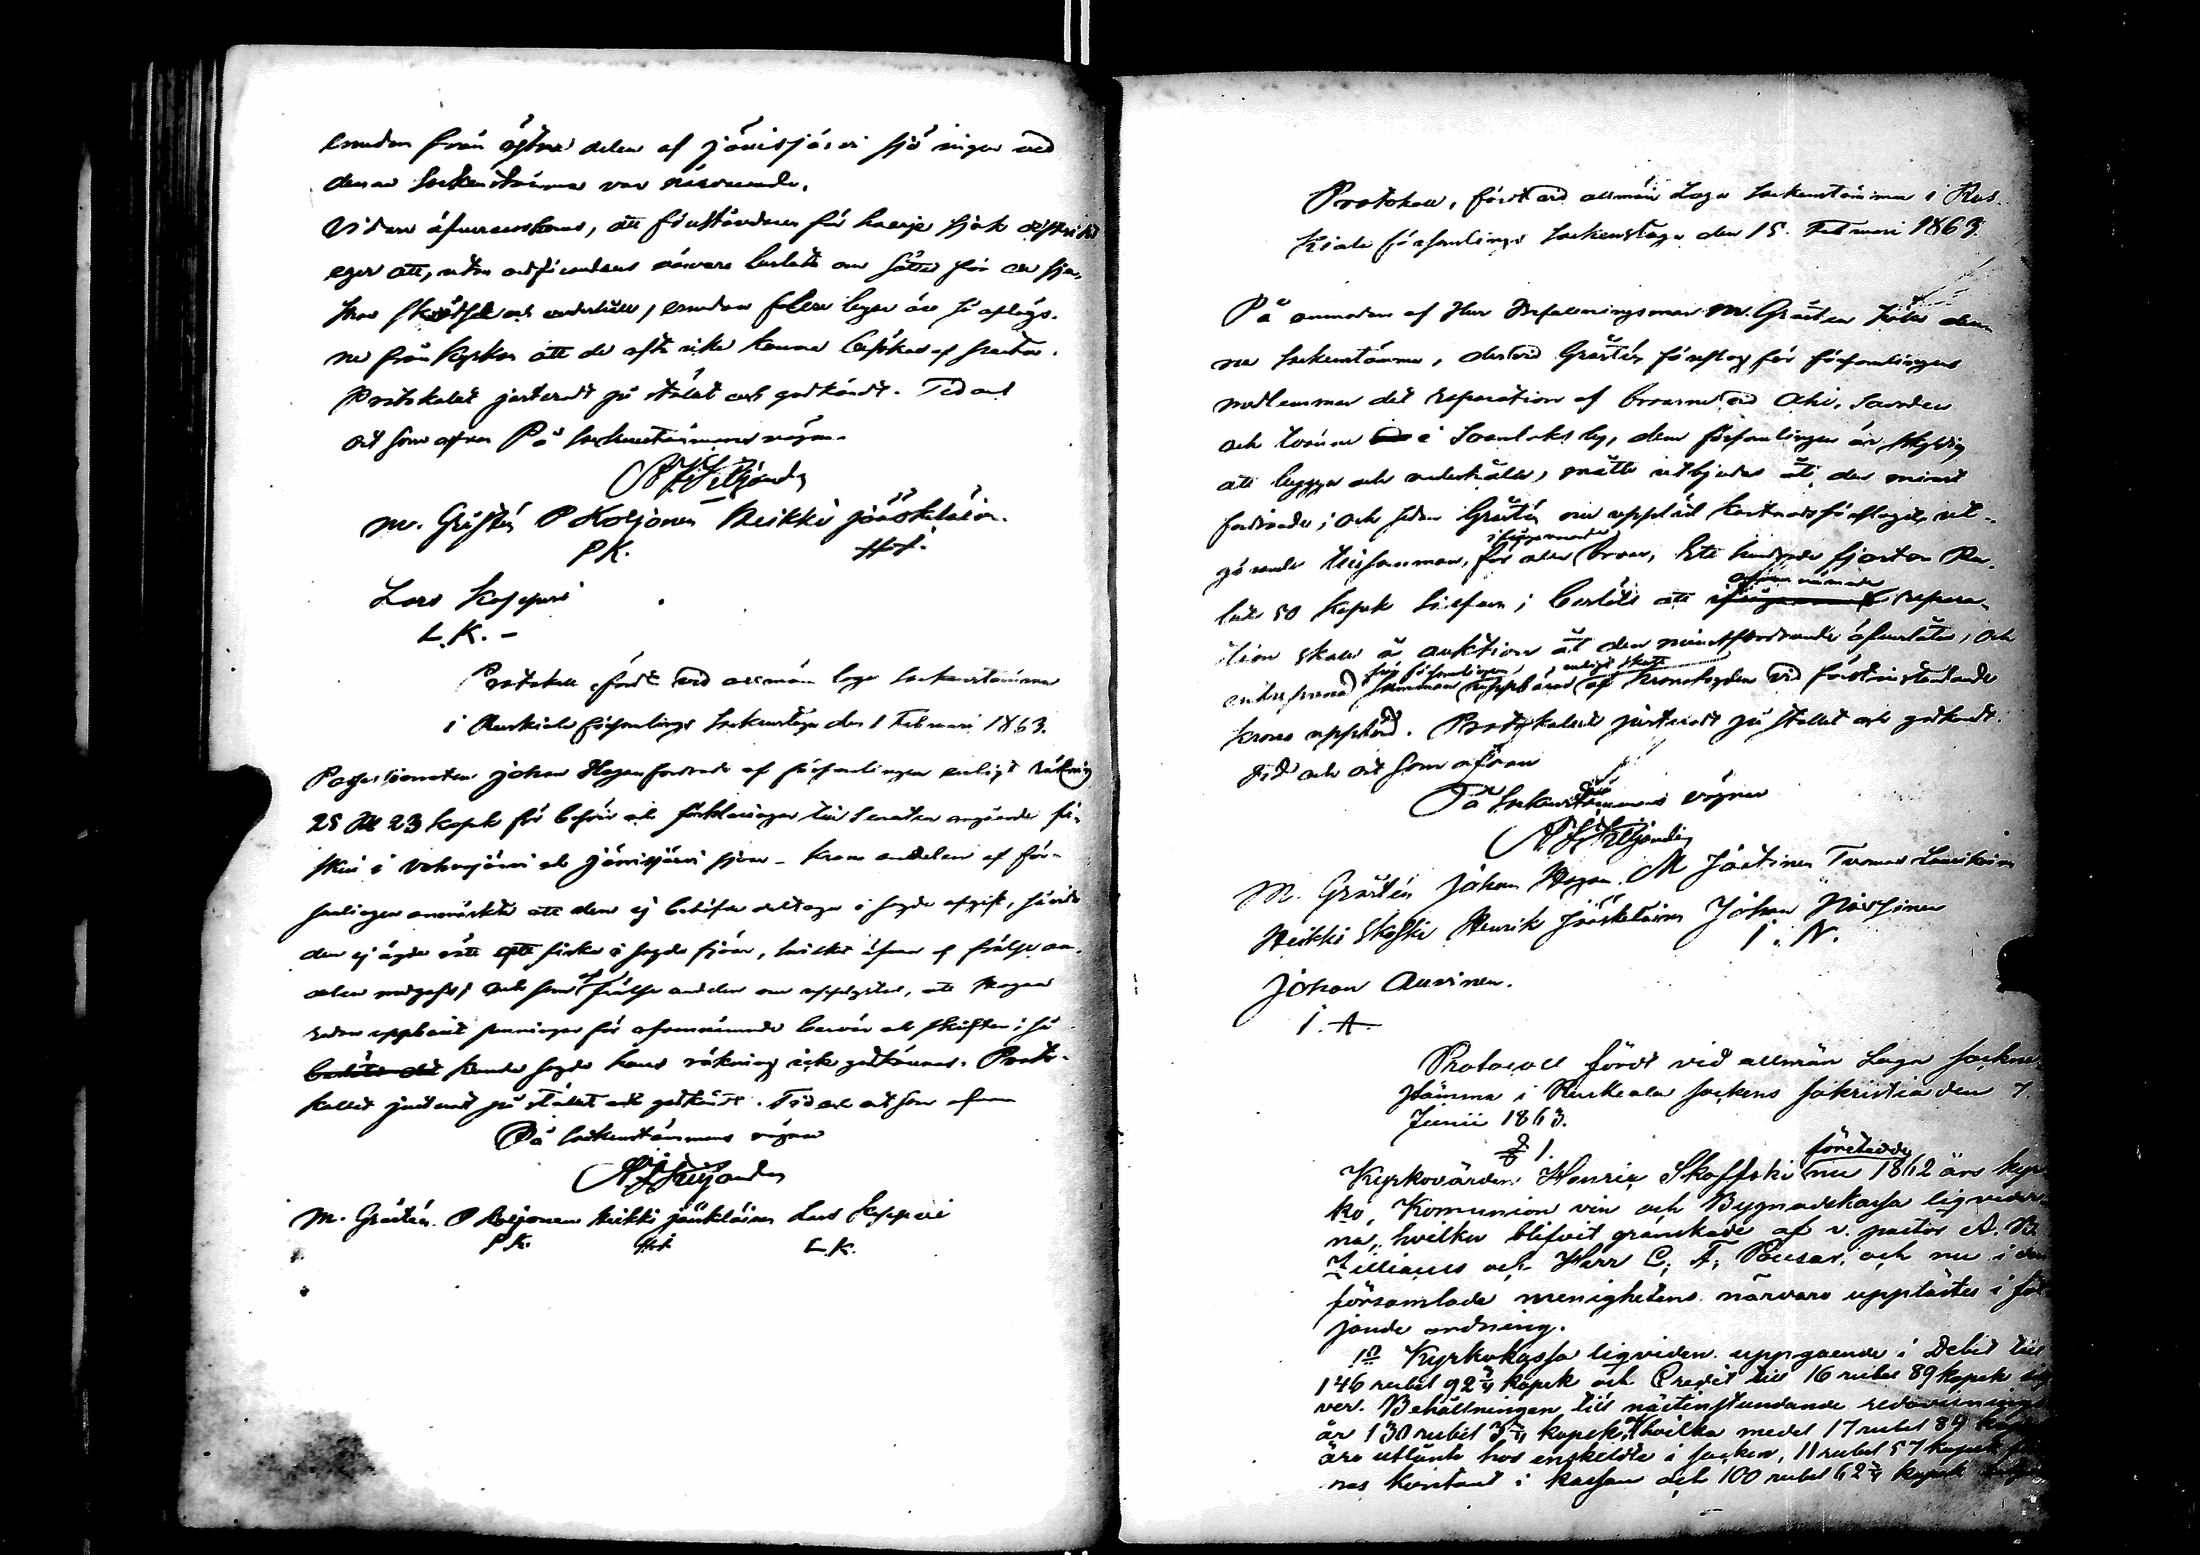 emedan från östra delen af Jänisjärvi sjö ingen vid
denna Sockenstämma var närvarande.
Vidare öfverenskoms, att föreståndaren för hvarje sjök distrikt
eger att, utan närvaro besluta om sättet för
skötsel och underhåll, emedan flere byar äro så aflägs-
ne från Kyrkan att de ofte icke kunna besökas af
Protokollet justeradt på stället och godkändt. Tid och
ort som ofvan På Sockenstämmans vägnar
M. Gråstén P Koljonen Heikki Jääskeläin.
P K. H. J.
Lars Kopperi
L. K. -
Protokoll, fördt vid allmän laga Sockenstämma
i Ruskiala församlings Sockenstuga den 1 Februari 1863.
Possessionaten Johan Hagan fordrade af församlingen enligt räkning
25 23 kopek för besvär och förklaringar till Senaten angående fi-
sket i och Jänisjärvi sjöar - krono andelen af för-
samlingen anmärkte att den ej behöfver deltaga i sagde afgift, såvida
den ej ägde rätt fiska i sagde sjöar, hvilket äfven af frälse an-
delen medgafs; och som frälse andelen nu upplystes, att Hagan
redan uppburit penningar för ofvannämnde besvär och skrifter; så
kunde sagde hans räkning icke godkännas. Proto-
kollet justerat på stället och godkändt. Tid och ort som ofvan
På Sockenstämmans vägnar
M. Gråstén. P Koljonen Heikki Jääskläinen Lars Kopperi
P. K. H. J. L. K.
Protokoll, fördt vid allmän Laga Sockenstämma i Rus-
kiala församlings Sockenstuga den 15 Februari 1863.
På anmodan af Herr Befallningsman M. Gråstén hölls den-
na Sockenstämma, dervid Gråstén föreslog för församlingens
medlemmar det reparation af broarne vid
och i by, dem församlingen är skyldig
att bygga och underhålla, måtte utbjudas åt den minst
fordrande; och sedan Gråstén nu uppläst kostnadsförslaget, ut-
görande tillsamman, för alla ifrågavarande broar, Ett hundrade fjorton Ru-
bel 50 Kopek Silfver; beslöts att ofvannämnde repara-
tion skall å auktion åt den minstfordrande öfverlåtas, och
entreprenad summan för församlingen uppbäras enligt skatt af Kronofogden vid förstinstundande
krono uppbörd. Protokollet justeradt på stället och godkändt.
Tid och ort som ofvan
På Sockenstämmans vägnar
M. Gråstén Johan Hagan. M Jantinen Tuomas Laurikain
Heikki Skoffski Henrik Jääskeläinen Johan Närhinen
I. N.
Johan Auvinen.
I. A.
Protocoll fördt vid allmän Laga Sockne-
stämma i Ruskeala sockens sakristia den 7.
Junii 1863.
§ 1.
Kyrkovärden Henric Skoffski företedde nu 1862 års kyr-
ko, Komunion vin och Bygnadskassa liqvider-
na, hvilka blifvit granskade af v. pastor A. B.
Zilliacus och Herr C. F. Pousar, och nu i den
församlade menighetens närvaro upplästes i föl-
jande ordning.
1o Kyrkokassa liqviden uppgående i Debet till
146 rubel 92 3/4 kopek och Credit till 16 rubel 89 kopek sil-
ver. Behållningen till nästinstundande redovisning
är 130 rubel 3 3/4 kopek, af hvilka medel 17 rubel 89 kop
äro utlånte hos enskildte i socken, 11 rubel 57 kopek fin-
nas kontant i kassan och 100 rubel 62 3/4 kopek